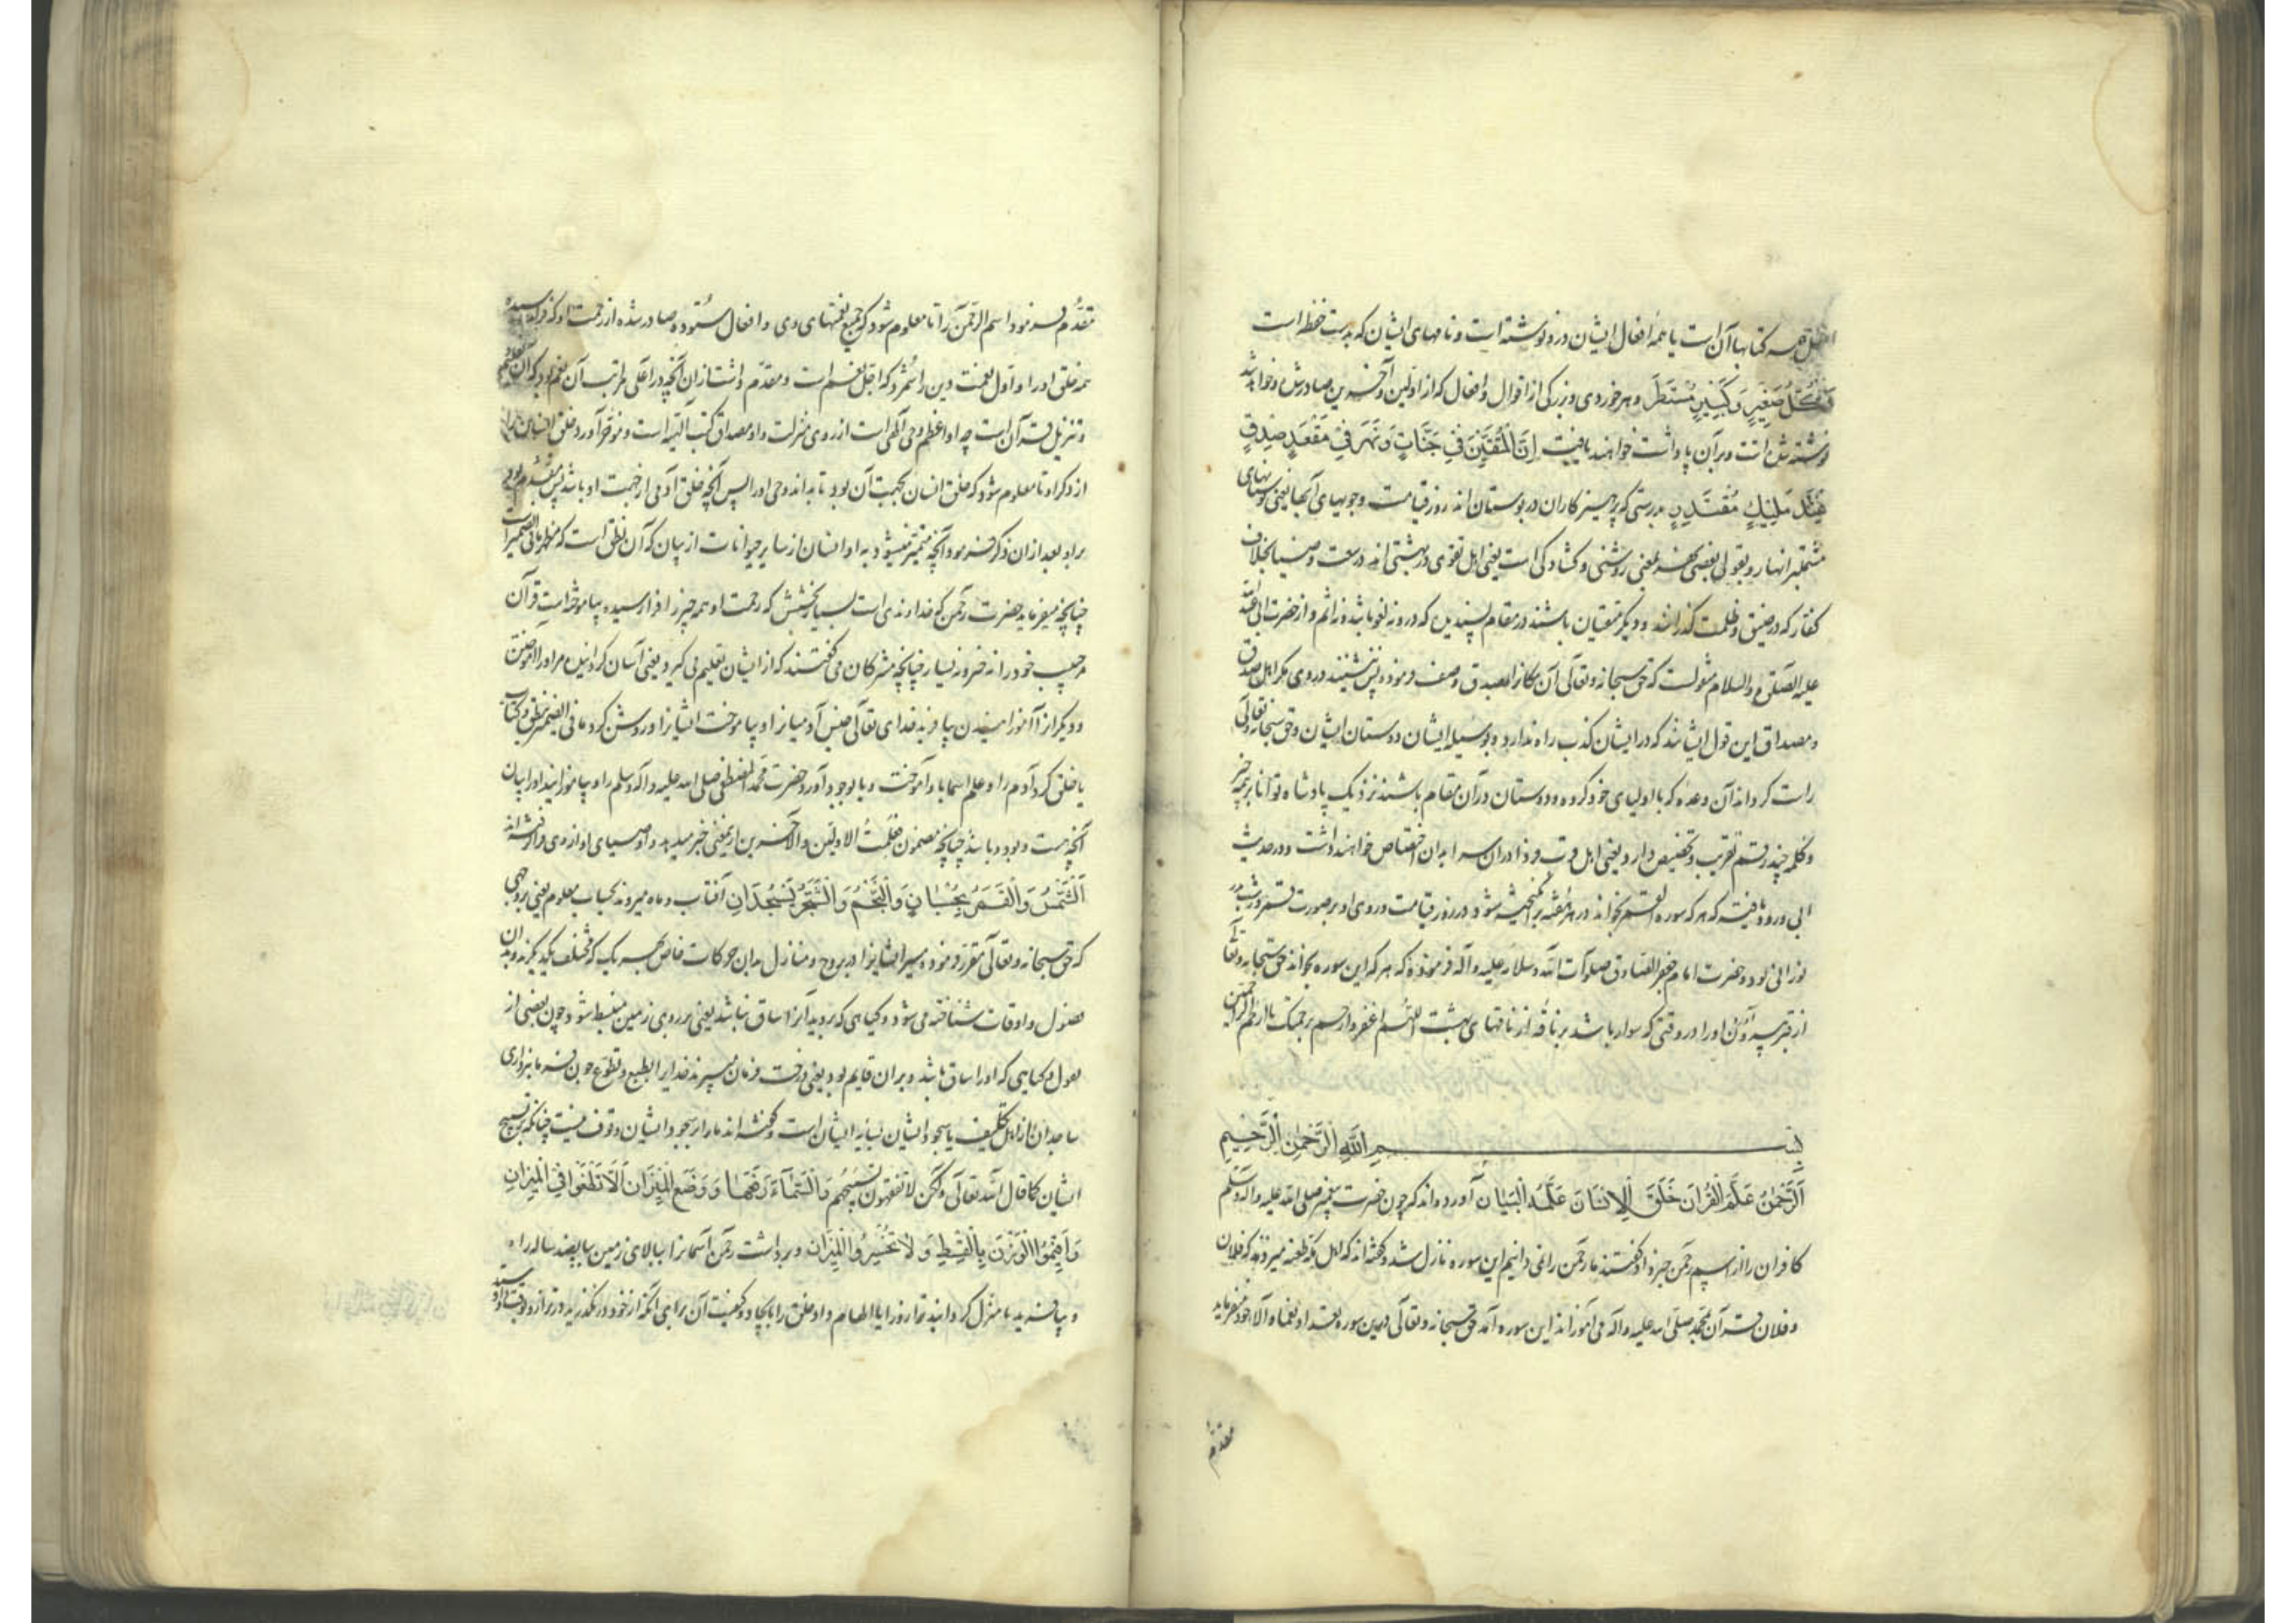 کتابها آن است یا همه افعال ایشان در و نوشته است و نامهای ایشان که بدست حفظه است
وَكُلُّ صَغِيرٍ وَكَبِيرٍ مُسْتَطَرٌ و هر خوردی و بزرکی از اقوال و افعال که از اولین و آخرین صادر شده و خواهد شد
نوشته شده است و بر آن پاداشت خواهند یافت إِنَّ الْمُتَّقِينَ فِي جَنَّاتٍ وَنَهَرٍ فِي مَقْعَدِ صِدْقٍ
عِنْدَ مَلِيكٍ مُقْتَدِرٍ بدرستی که پرهیزکاران در بوستان اند روز قیامت و جویهای آبها یعنی بوستانهای
مشتمل بر انهار و بقولی بعضی نهر یعنی روشنی و کشادکی است یعنی اهل تقوی در بهشتی اند در سعت و ضیا بخلاف
کفار که در ضیق و ظلمت گذرانند و دیکر متقیان باشند در مقام پسندیده که در و نه لغو باشد و نه اثم و از حضرت ابی عبد الله
علیه الصلوة والسلام منقولست که حق سبحانه و تعالی آن مکانرا بصدق وصف فرمود پس ننشیند در وی مکر اهل صدق
و مصداق این قول ایشانند که در ایشان کذب راه ندارد و بوسیله ایشان دوستان ایشان و حق سبحانه و تعالی
راست کرداند آن وعده که با اولیای خود کرده و دوستان در آن مقام باشند نزدیک پادشاه توانا بر همه چیز
و کلمه عند رقم تقریب و تخصیص دارد یعنی اهل قرب فردا در ان سرا بدان اختصاص خواهند داشت و در حدیث
ابی ورود یافته که هر که سوره القمر بخواند در هر برانکیخته شود در روز قیامت و روی او بر صورت قمر در شب بدر
نورانی بود و حضرت امام جعفر الصادق صلوات الله و سلامه علیه و آله فرموده که هر که این سوره بخواند حق سبحانه و تعالی
از قبر بیرون آورد او را در وقتی که سوار باشد بر ناقه از ناقهای بهشت اللهم اغفر وارحم برحمتک یا ارحم الراحمین
بِسْمِ اللَّهِ الرَّحْمٰنِ الرَّحِيمِ
اَلرَّحْمٰنُ عَلَّمَ الْقُرْاٰنَ خَلَقَ الْاِنْسَانَ عَلَّمَهُ الْبَيَانَ آورده اند که چون حضرت پیغمبر صلی الله علیه و آله وسلم
کافران را از اسم رحمن خبر داد گفتند ما رحمن را نمی دانیم این سوره نازل شد و کفته اند که اهل مکه طعنه میزدند که فلان
و فلان قرآن بمحمد صلی الله علیه و آله می آموزاند این سوره آمد حق سبحانه و تعالی درین سوره تعداد نعماء و آلاء خود میفرماید
مقدم
مقدم فرمود اسم الرحمن را تا معلوم شود که جمیع نعمتهای وی و افعال ستوده صادر شده از رحمت او که فرا رسیده
همه خلق او را و اول نعمت دین را شمرد که اجل نعم است و مقدم داشت از ان آنچه در اعلی مراتب آن نعم بود که آن
و تنزیل قرآن است چه او اعظم وحی الهی است از روی منزلت و او مصداق کتب الهیه است و مؤخر آورد خلق انسان را
از ذکر او تا معلوم شود که خلق انسان بجهت آن بود تا بداند وحی او را پس آنچه خلق آدمی از جهت او باشد پس مقدم بود
بر او بعد از ان ذکر فرمود آنچه متمیز میشود به او انسان از سایر حیوانات از بیان که آن نطق است که مظهر ما فی الضمیر است
چنانچه میفرماید حضرت رحمن که خداوندی است بسیار بخشش که رحمت او همه چیز را فرا رسیده بیاموخته است قرآن
مر حبیب خود را نه خبر و نه یسار چنانچه مشرکان می کفتند که از ایشان تعلیم می کیرد یعنی آسان کردانیده مر او را آموختن
و دیکر از آموزانیدن بیافرید خدای تعالی جنس آدمیانرا و بیاموخت ایشانرا و روشن کرد ما فی الضمیر بنطق و کتاب
یا خلق کرد آدم را و علم اسما باو آموخت و یا بوجود آورد حضرت محمد المصطفی صلی الله علیه و آله وسلم را و بیاموزانید او را بیان
آنچه هست و بود و باشد چنانچه مضمون فعلمت الاولین و الآخرین ازین معنی خبر میدهد و اوصیای او از وی فرا گرفته اند
اَلشَّمْسُ وَالْقَمَرُ بِحُسْبَانٍ وَالنَّجْمُ وَالشَّجَرُ يَسْجُدَانِ آفتاب و ماه میروند بحساب معلوم یعنی بر وجهی
که حق سبحانه و تعالی مقرر فرموده سیر ایشانرا در بروج و منازل بدان حرکات خاص هر یک که مختلف یکدیکرند و بدان
فصول و اوقات شناخته می شود و کیاهی که بروید آنرا ساق نباشد یعنی بر روی زمین منبسط شود چون بعضی از
بقول و کیاهی که او را ساق باشد و بران قایم بود یعنی درخت فرمان میبرند خدایرا بطبع و تطوع چون فرمانبرداری
ساجدان از اهل تکلیف یا سجود ایشان بسایه ایشان است و کفته اند ما را بر سجود ایشان وقوف نیست چنانکه بر تسبیح
ایشان کما قال الله تعالی ولکن لا تفقهون تسبیحهم وَالسَّمَاءَ رَفَعَهَا وَوَضَعَ الْمِيزَانَ اَلَّا تَطْغَوْا فِي الْمِيزَانِ
وَاَقِيمُوا الْوَزْنَ بِالْقِسْطِ وَلَا تُخْسِرُوا الْمِيزَانَ و برداشت رحمن آسمانرا ببالای زمین بپانصد ساله راه
و بیافرید یا منزل کردانید ترازو را یا الهام داد خلق را بایجاد و کیفیت آن برای آنکه از خود در نکذرید در ترازو بوقت داد و ستد